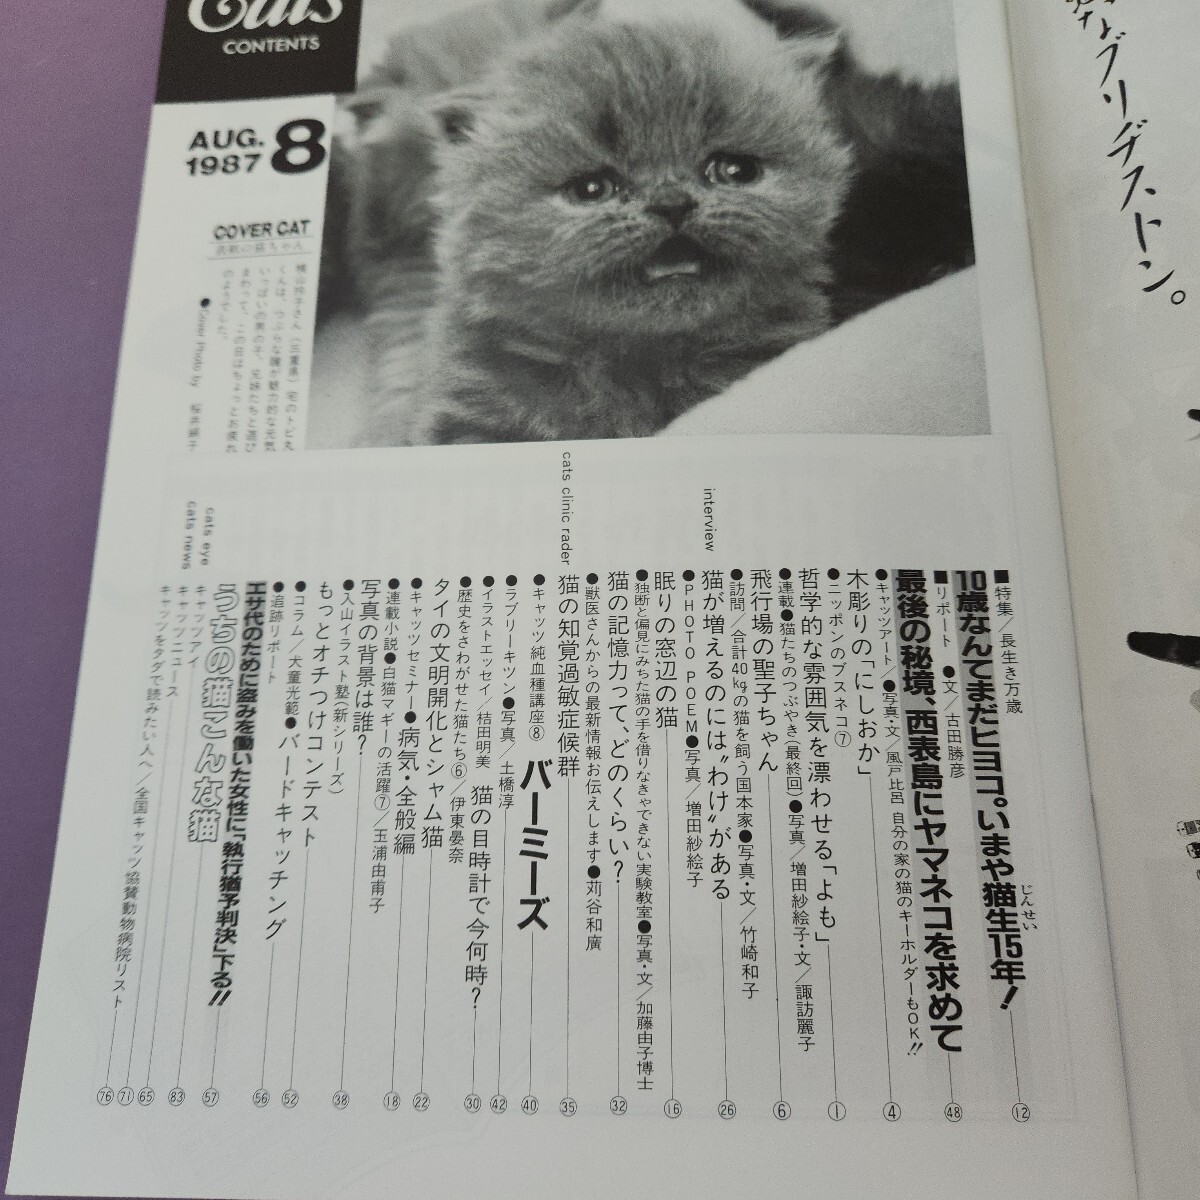 Cats
CONTENTS
AUG.
1987
8
COVER CAT
表紙の猫ちゃん
さん(三重県)宅のトビ丸
くんは、つぶらな瞳が魅力的な元気
いっぱいの男の子。兄妹たちと遊び
まわって、この日はちょっとお疲れ
のようでした。
●Cover Photo by
ブリヂストン。
■特集/長生き万歳
10歳なんてまだヒヨコ。いまや猫生15年!
じんせい
⑫
■リポート ●文/古田勝彦
最後の秘境、西表島にヤマネコを求めて
㊽
●キャッツアート/●写真・文/風戸比呂 自分の家の猫のキーホルダーもOK!!
木彫りの「にしおか」
④
●ニッポンのブスネコ⑦
哲学的な雰囲気を漂わせる「よも」
①
●連載●猫たちのつぶやき(最終回)●写真/増田紗絵子・文/諏訪麗子
飛行場の聖子ちゃん
⑥
interview
●訪問/合計40kgの猫を飼う国本家●写真・文/竹崎和子
猫が増えるのには“わけ”がある
㉖
●PHOTO POEM●写真/増田紗絵子
眠りの窓辺の猫
⑯
●独断と偏見にみちた猫の手を借りなきゃできない実験教室●写真・文/加藤由子博士
猫の記憶力って、どのくらい?
㉜
cats clinic rader
●獣医さんからの最新情報お伝えします●苅谷和廣
猫の知覚過敏症候群
㉟
●キャッツ純血種講座⑧ バーミーズ
㊵
●ラブリーキツン●写真/土橋淳
㊷
●イラストエッセイ/桔田明美 猫の目時計で今何時?
㉚
●歴史をさわがせた猫たち⑥/伊東晏奈
タイの文明開化とシャム猫
㉒
●キャッツセミナー●病気・全般編
⑱
●連載小説●白猫マギーの活躍⑦/玉浦由甫子
写真の背景は誰?
㊳
●入山イラスト塾(新シリーズ)
もっとオチつけコンテスト
52
●コラム/犬童光範●バードキャッチング
56
●追跡リポート
エサ代のために盗みを働いた女性に「執行猶予判決」下る!!
57
うちの猫こんな猫
83
cats eye
キャッツアイ
65
cats news
キャッツニュース
71
キャッツをタダで読みたい人へ/全国キャッツ協賛動物病院リスト
76